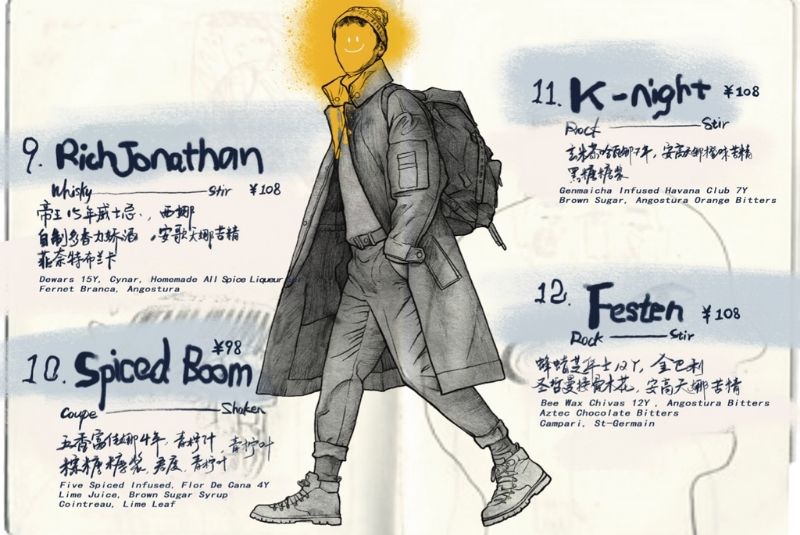 9. RichJonathan
Whisky Stir ¥108
帝王15年威士忌, 西娜
自制多香力娇酒, 安歌天娜苦精
菲奈特布兰卡
Dewars 15Y, Cynar, Homemade All Spice Liqueur
Fernet Branca, Angostura
10. Spiced Boom ¥98
Coupe Shaken
五香富佳娜4年, 青柠汁, 青柠叶
棕糖糖浆, 君度, 青柠叶
Five Spiced Infused, Flor De Cana 4Y
Lime Juice, Brown Sugar Syrup
Cointreau, Lime Leaf
11. K-night ¥108
Rock Stir
玄米茶哈瓦那7年, 安高天娜橙味苦精
黑糖糖浆
Genmaicha Infused Havana Club 7Y
Brown Sugar, Angostura Orange Bitters
12. Festen ¥108
Rock Stir
蜂蜡芝华士12Y, 金巴利
安高天娜苦精
Bee Wax Chivas 12Y, Angostura Bitters
Aztec Chocolate Bitters
Campari, St-Germain